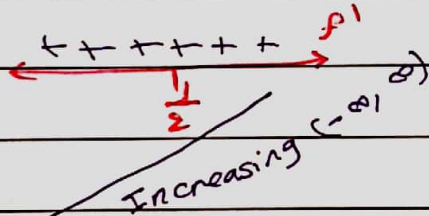 + + + + + + f'
1/2
Increasing (-∞, ∞)